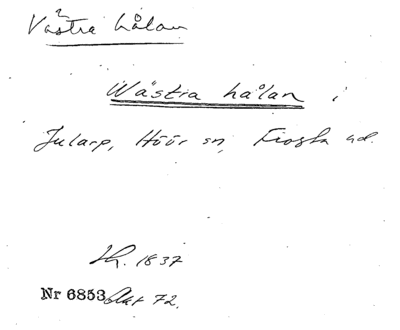 Västra hålan
Wästra hålan i
Jularp, Höör sn, Frosta hd.
1837
Nr 6853 Akt 72.